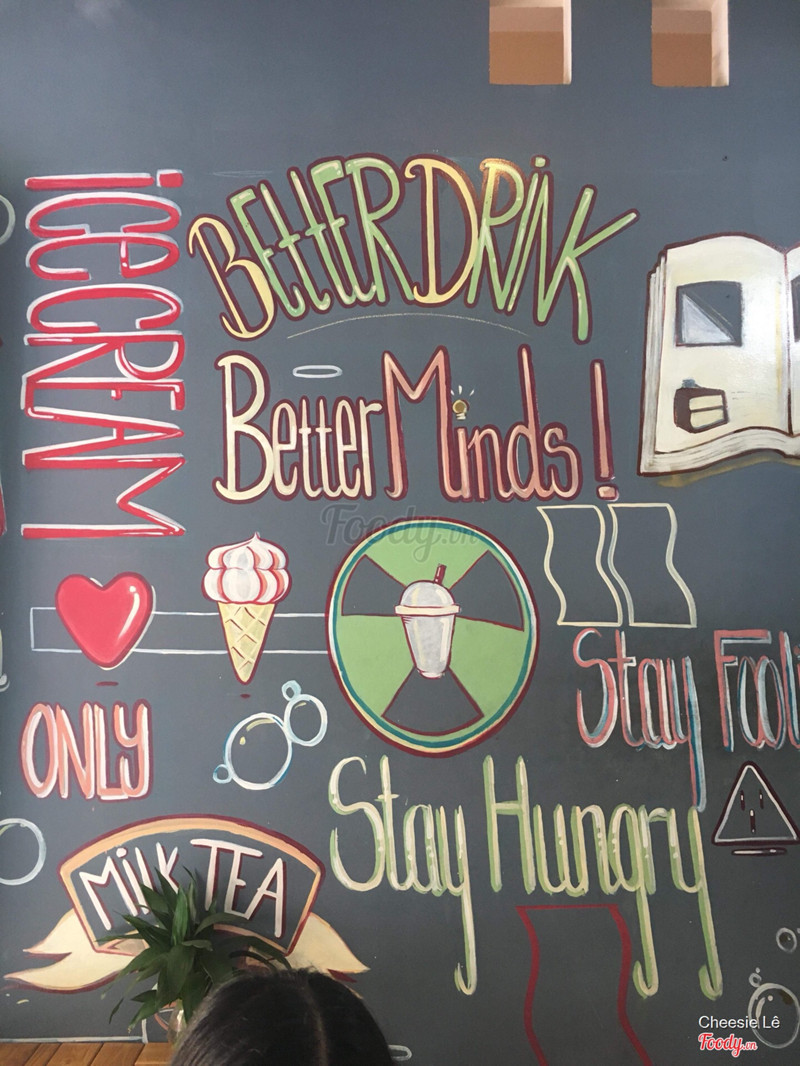 iCE CREAM
BEttER DRiNK
Better Minds!
Foody.vn
Stay
ONLY
Stay Hungry
MiLK TEA
Cheesie Lê
Foody.vn